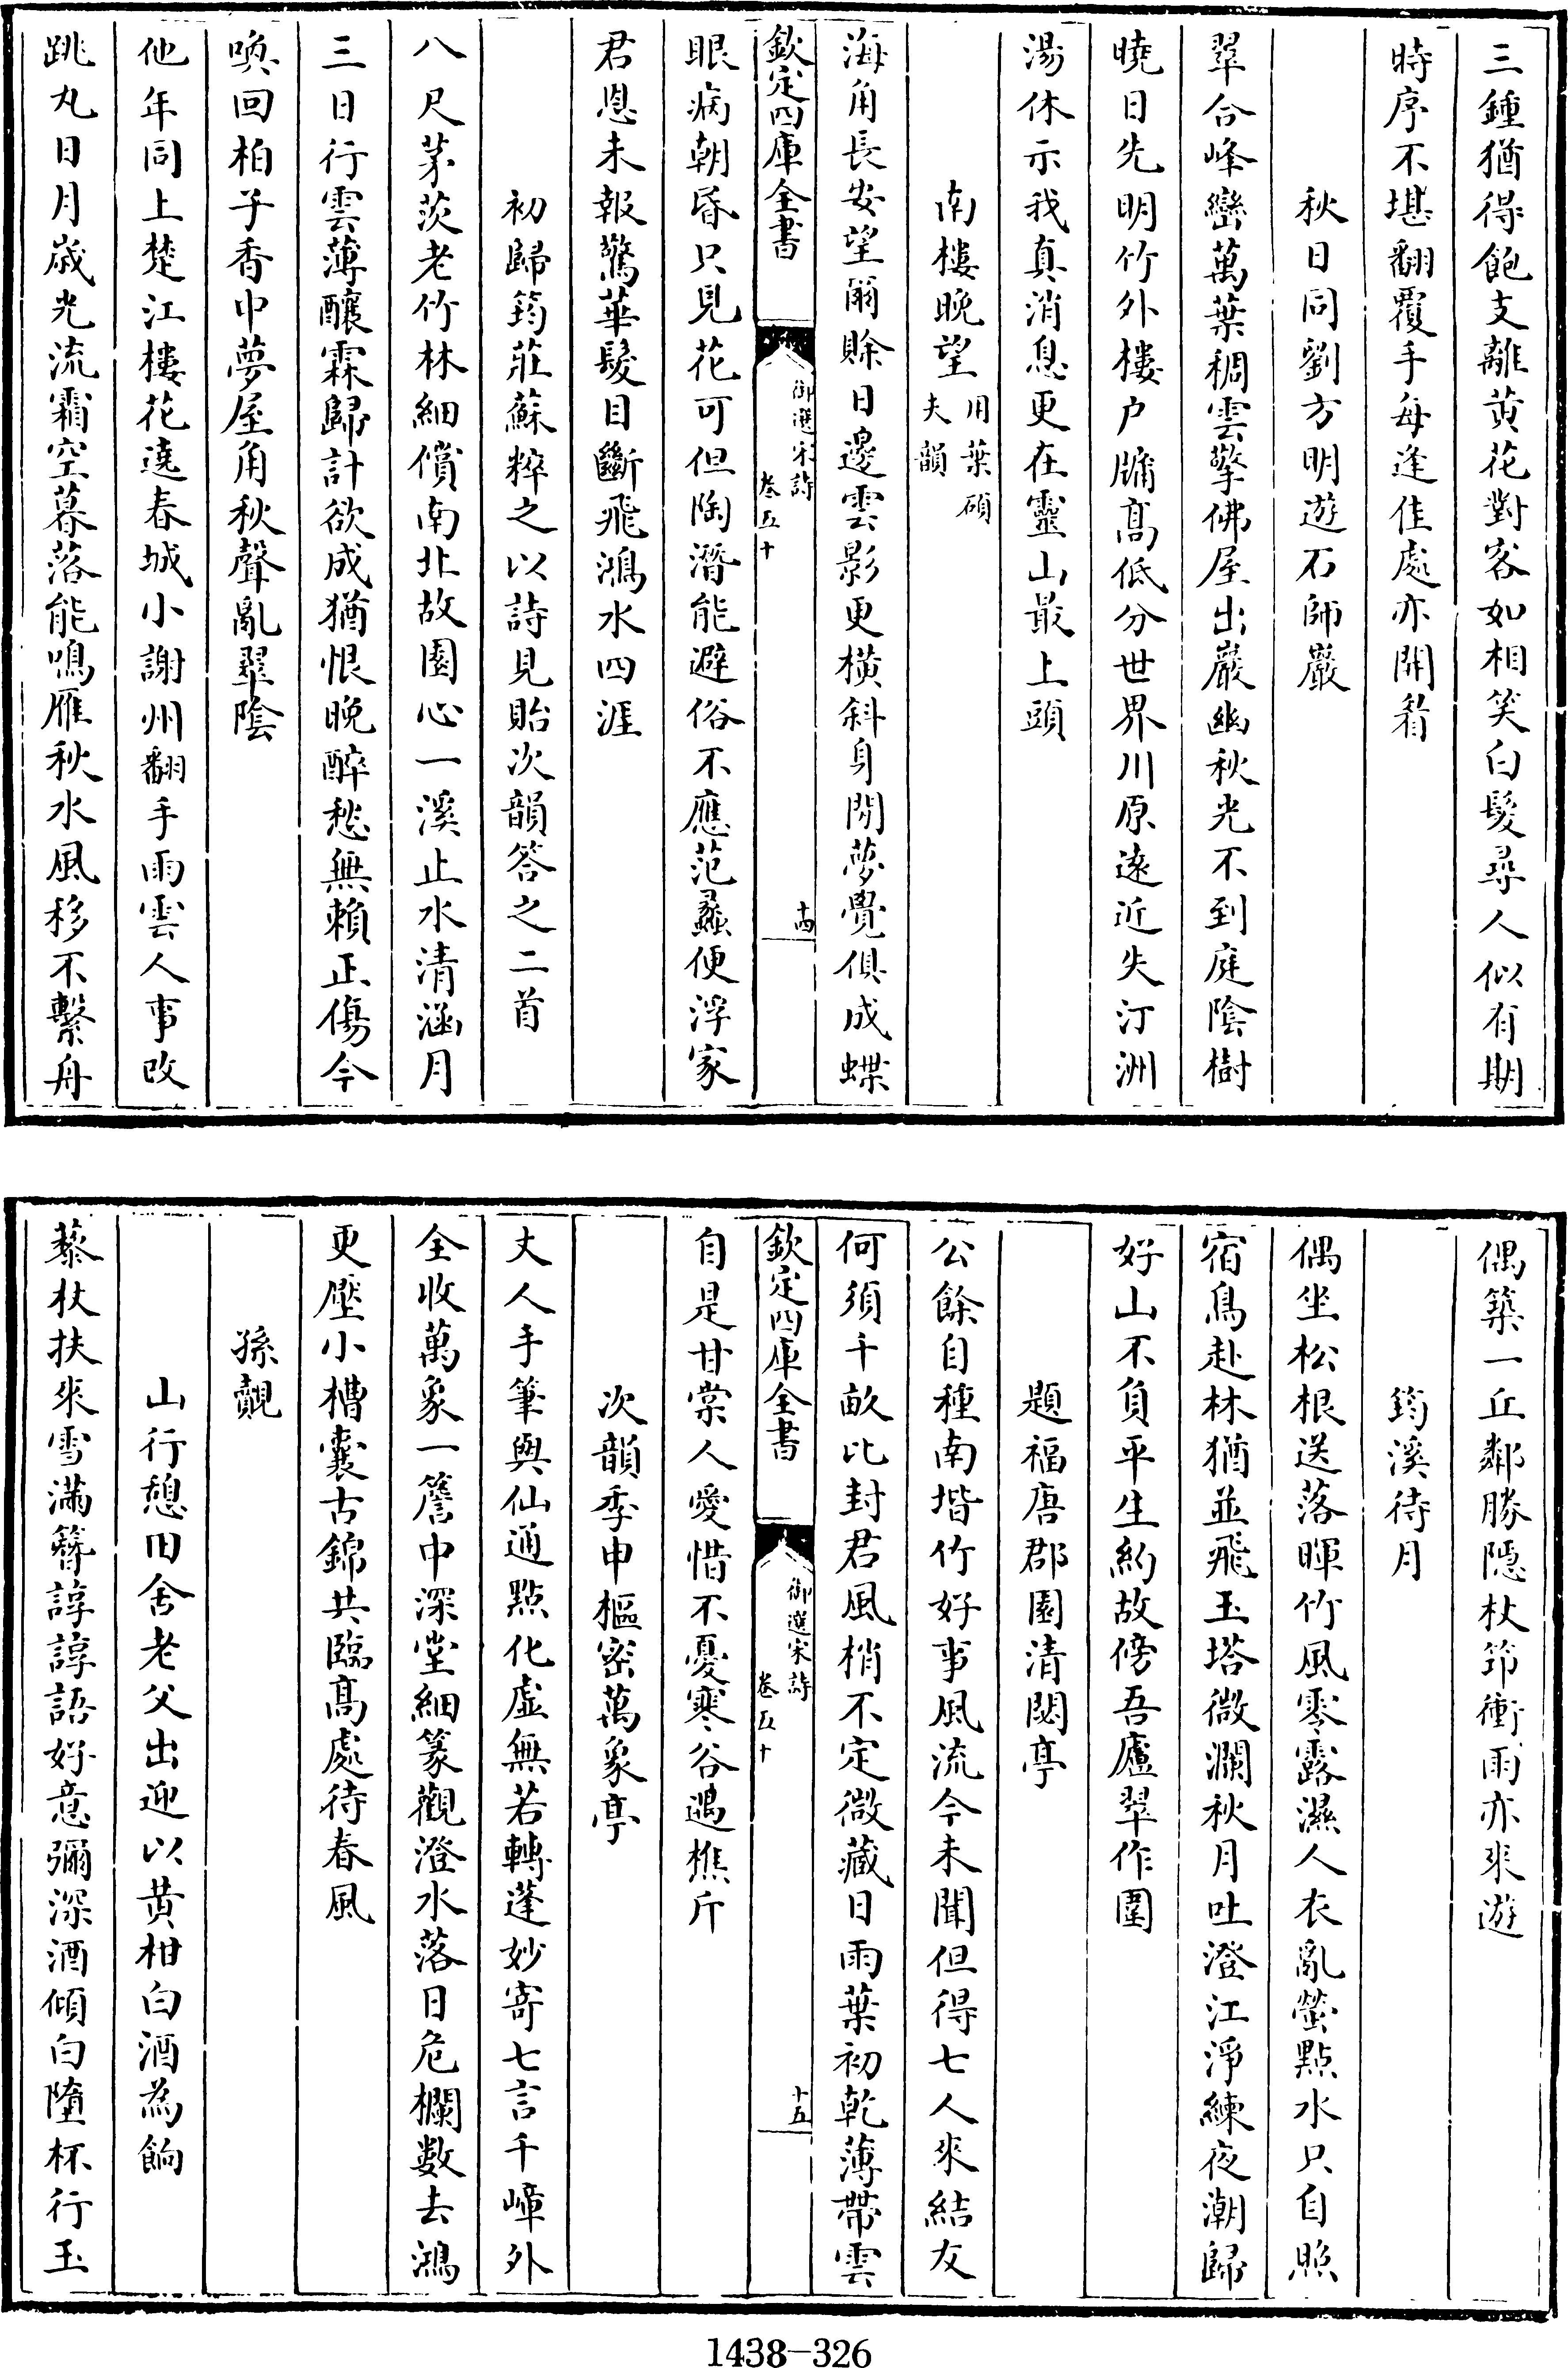 三鍾猶得飽支離黄花對客如相笑白髮尋人似有期
時序不堪翻覆手每逢佳處亦開看
秋日同劉方明遊石師巖
翠合峰巒萬葉稠雲擎佛屋出巖幽秋光不到庭陰樹
曉日先明竹外樓户牖髙低分世界川原遠近失汀洲
湯休示我真消息更在靈山最上頭
南樓晚望用葉碩夫韻
海角長安望爾賖日邊雲影更橫斜身閒夢覺俱成蝶
欽定四庫全書
御選宋詩
卷五十
十四
眼病朝昏只見花可但陶潛能避俗不應范蠡便浮家
君恩未報驚華髮目斷飛鴻水四涯
初歸筠莊蘇粹之以詩見貽次韻答之二首
八尺茅茨老竹林細償南北故園心一溪止水清涵月
三日行雲薄釀霖歸計欲成猶恨晚醉愁無賴正傷今
喚回柏子香中夢屋角秋聲亂翠陰
他年同上楚江樓花遶春城小謝州翻手雨雲人事改
跳丸日月歳光流霜空暮落能鳴雁秋水風移不繫舟
偶築一丘鄰勝隱杖笻衝雨亦來遊
筠溪待月
偶坐松根送落暉竹風零露濕人衣亂螢點水只自照
宿鳥赴林猶並飛玉塔微瀾秋月吐澄江淨練夜潮歸
好山不負平生約故傍吾廬翠作圍
題福唐郡園清閟亭
公餘自種南堦竹好事風流今未聞但得七人來結友
何須千畝比封君風梢不定微藏日雨葉初乾薄帶雲
欽定四庫全書
御選宋詩
卷五十
十五
自是甘棠人愛惜不憂寒谷遇樵斤
次韻季申樞密萬象亭
丈人手筆與仙通點化虛無若轉蓬妙寄七言千嶂外
全收萬象一簷中深堂細篆觀澄水落日危欄數去鴻
更壓小槽囊古錦共臨髙處待春風
孫覿
山行憩田舍老父出迎以黄柑白酒為餉
藜杖扶來雪滿簪諄諄語好意彌深酒傾白墮杯行玉
1438-326